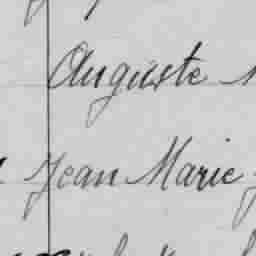 Auguste
Jean Marie